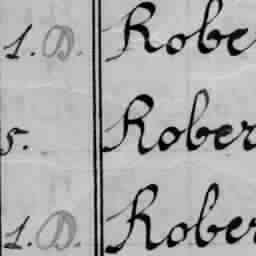 1. D. Robe
5. Rober
1. D. Rober